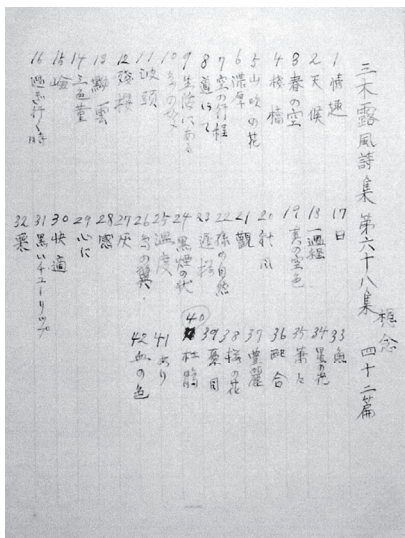 三木露風詩集 第六十八集 概念 四十二篇
1 情趣
2 天候
3 春の空
4 桟橋
5 山吹の花
6 濃厚
7 空の行程
8 道にて
9 生活にある
10 冬の
11 波頭
12 発揮
13 動雲
14 三色菫
15 崎
16 過ぎ行く時
17 日
18 一過程
19 真の空色
20 秋
21 観
22 様の自然
23 遊
24 黒煙の
25 温度
26 鳥の翼
27 灰
28 感
29 心に
30 快適
31 黒いチューリップ
32 栗
33 魚
34 星の光
35 葉
36 配合
37 豊麗
38 桜の花
39 夏
40 杜鵑
41 あり
42 血の色